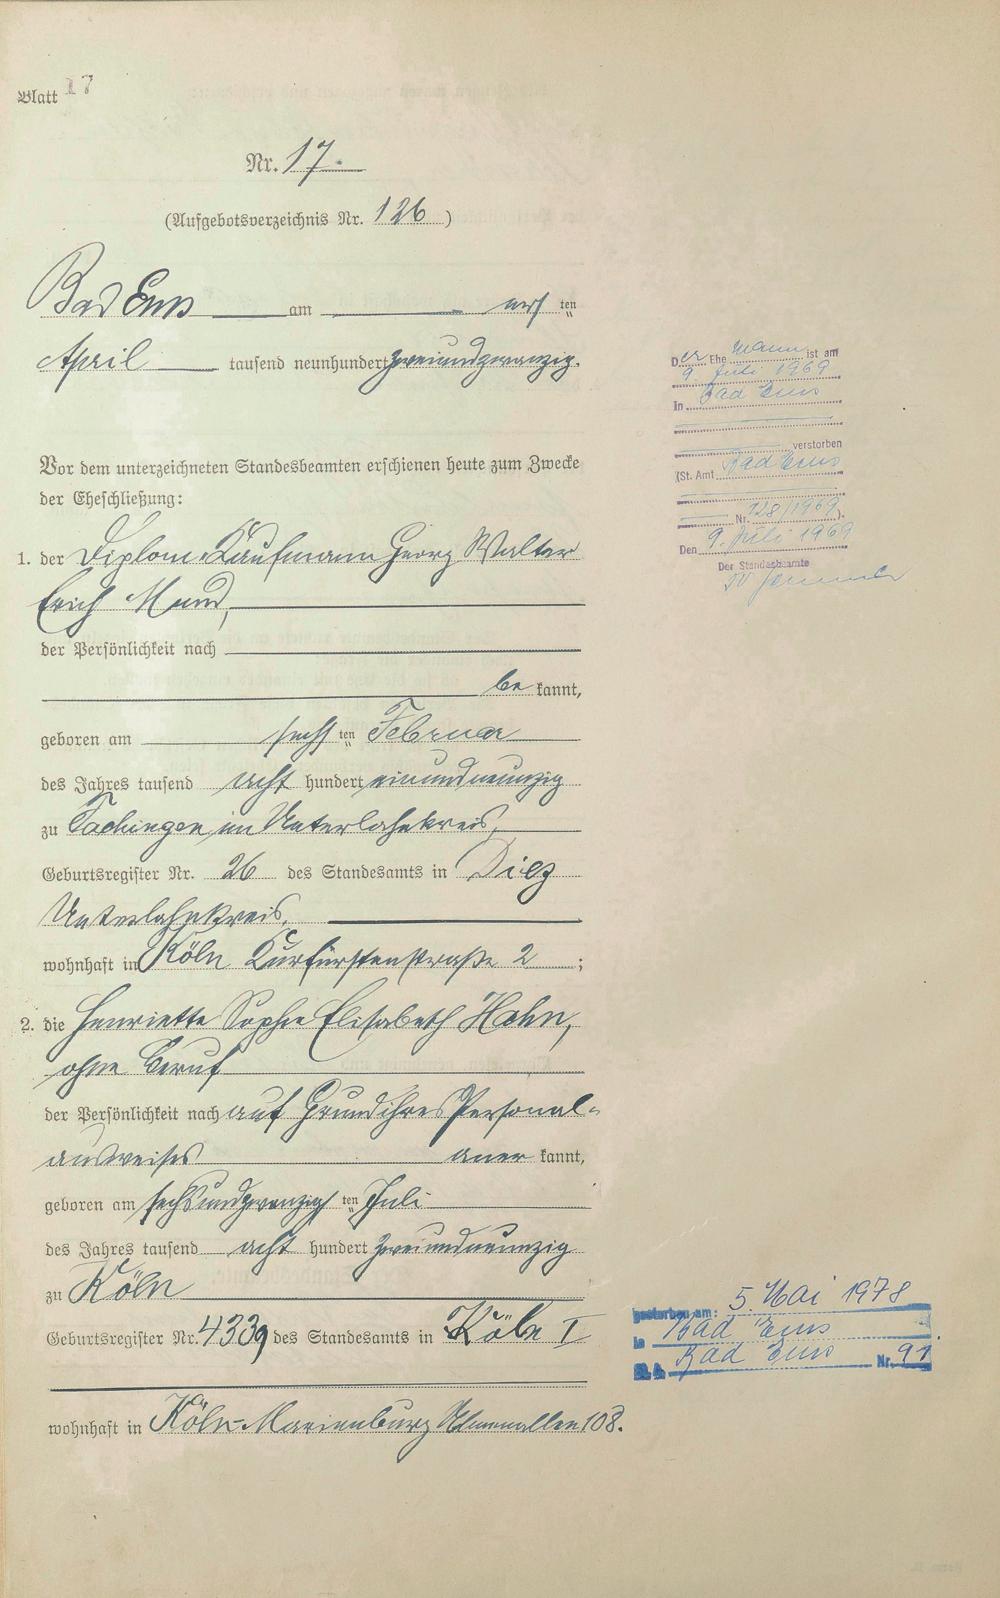 Blatt 17
Nr. 17.
(Aufgebotsverzeichnis Nr. 126)
Bad Ems am ersten
April tausend neunhundert zweiundzwanzig.
Vor dem unterzeichneten Standesbeamten erschienen heute zum Zwecke
der Eheschließung:
1. der Diplom-Kaufmann Georg Walter
Erich Mund,
der Persönlichkeit nach
be kannt,
geboren am sechsten Februar
des Jahres tausend acht hundert einundneunzig
zu Fachingen im Unterlahnkreis,
Geburtsregister Nr. 26 des Standesamts in Diez
Unterlahnkreis,
wohnhaft in Köln Kurfürstenstraße 2;
2. die Henriette Sophie Elisabeth Hahn,
ohne Beruf
der Persönlichkeit nach auf Grund ihres Personal-
ausweises aner kannt,
geboren am sechsundzwanzigsten Juli
des Jahres tausend acht hundert zweiundneunzig
zu Köln
Geburtsregister Nr. 4339 des Standesamts in Köln I
wohnhaft in Köln-Marienburg Ulmenallee 108.
Der Ehemann ist am
9. Juli 1969
In Bad Ems
verstorben
(St. Amt Bad Ems
Nr. 128/1969).
Den 9. Juli 1969
Der Standesbeamte
IV
gestorben am: 5. Mai 1978
in Bad Ems
St. A. Bad Ems Nr. 91